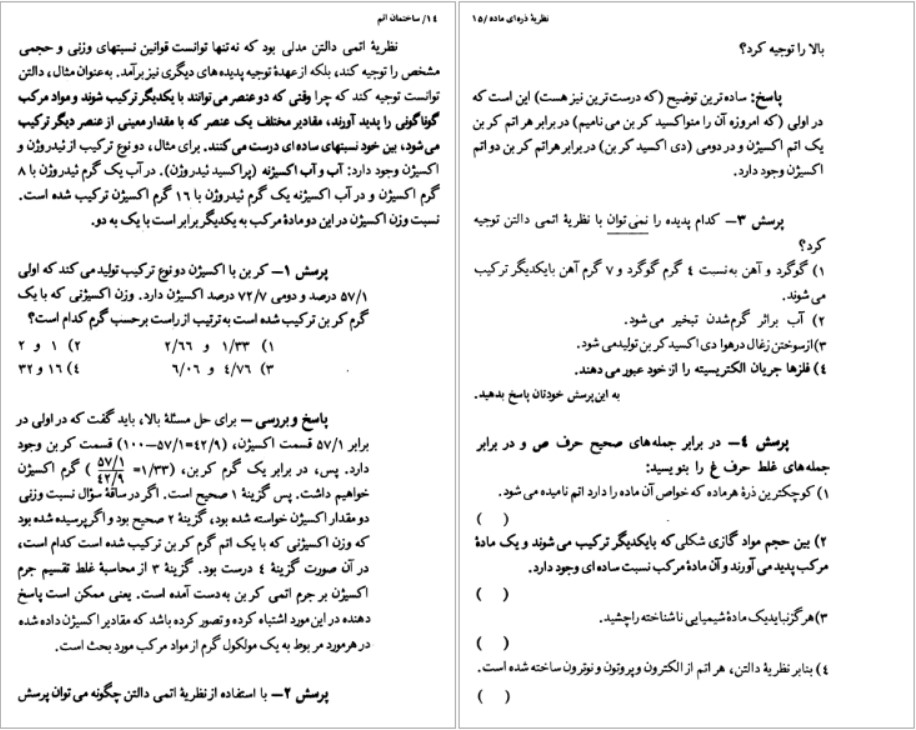 ۱۴/ ساختمان اتم
نظریهٔ اتمی دالتن مدلی بود که نه‌تنها توانست قوانین نسبتهای وزنی و حجمی
مشخص را توجیه کند، بلکه از عهدهٔ توجیه پدیده‌های دیگری نیز برآمد. به‌عنوان مثال، دالتن
توانست توجیه کند که چرا وقتی که دو عنصر می‌توانند با یکدیگر ترکیب شوند و مواد مرکب
گوناگونی را پدید آورند، مقادیر مختلف یک عنصر که با مقدار معینی از عنصر دیگر ترکیب
می‌شود، بین خود نسبتهای ساده‌ای درست می‌کنند. برای مثال، دو نوع ترکیب از ئیدروژن و
اکسیژن وجود دارد: آب و آب اکسیژنه (پراکسید ئیدروژن). در آب یک گرم ئیدروژن با ۸
گرم اکسیژن و در آب اکسیژنه یک گرم ئیدروژن با ۱۶ گرم اکسیژن ترکیب شده است.
نسبت وزن اکسیژن در این دو مادهٔ مرکب به یکدیگر برابر است با یک به دو.
پرسش ۱— کربن با اکسیژن دو نوع ترکیب تولید می‌کند که اولی
۵۷/۱ درصد و دومی ۷۲/۷ درصد اکسیژن دارد. وزن اکسیژنی که با یک
گرم کربن ترکیب شده است به‌ترتیب از راست برحسب گرم کدام است؟
۱) ۱/۳۳ و ۲/۶۶ ۲) ۱ و ۲
۳) ۴/۷۶ و ۶/۰۶ ۴) ۱۶ و ۳۲
پاسخ و بررسی — برای حل مسئلهٔ بالا، باید گفت که در اولی در
برابر ۵۷/۱ قسمت اکسیژن، (۴۲/۹=۵۷/۱—۱۰۰) قسمت کربن وجود
دارد. پس، در برابر یک گرم کربن، (۱/۳۳= ۵۷/۱ / ۴۲/۹) گرم اکسیژن
خواهیم داشت. پس گزینهٔ ۱ صحیح است. اگر در ساقهٔ سؤال نسبت وزنی
دو مقدار اکسیژن خواسته شده بود، گزینهٔ ۲ صحیح بود و اگر پرسیده شده بود
که وزن اکسیژنی که با یک اتم گرم کربن ترکیب شده است کدام است،
در آن صورت گزینهٔ ۴ درست بود. گزینهٔ ۳ از محاسبهٔ غلط تقسیم جرم
اکسیژن بر جرم اتمی کربن به‌دست آمده است. یعنی ممکن است پاسخ
دهنده در این مورد اشتباه کرده و تصور کرده باشد که مقادیر اکسیژن داده شده
در هر مورد مربوط به یک مولکول گرم از مواد مرکب مورد بحث است.
پرسش ۲— با استفاده از نظریهٔ اتمی دالتن چگونه می‌توان پرسش
نظریهٔ ذره‌ای ماده /۱۵
بالا را توجیه کرد؟
پاسخ: ساده‌ترین توضیح (که درست‌ترین نیز هست) این است که
در اولی (که امروزه آن را منواکسید کربن می‌نامیم) در برابر هر اتم کربن
یک اتم اکسیژن و در دومی (دی اکسید کربن) در برابر هر اتم کربن دو اتم
اکسیژن وجود دارد.
پرسش ۳— کدام پدیده را نمی‌توان با نظریهٔ اتمی دالتن توجیه
کرد؟
۱) گوگرد و آهن به‌نسبت ۴ گرم گوگرد و ۷ گرم آهن بایکدیگر ترکیب
می‌شوند.
۲) آب براثر گرم‌شدن تبخیر می‌شود.
۳) ازسوختن زغال درهوا دی اکسید کربن تولیدمی شود.
۴) فلزها جریان الکتریسیته را از خود عبور می‌دهند.
به این پرسش خودتان پاسخ بدهید.
پرسش ۴— در برابر جمله‌های صحیح حرف ص و در برابر
جمله‌های غلط حرف غ را بنویسید:
۱) کوچکترین ذرهٔ هرماده که خواص آن ماده را دارد اتم نامیده می‌شود.
( )
۲) بین حجم مواد گازی شکلی که بایکدیگر ترکیب می‌شوند و یک مادهٔ
مرکب پدید می‌آورند و آن مادهٔ مرکب نسبت ساده‌ای وجود دارد.
( )
۳) هرگز نبایدیک مادهٔ شیمیایی ناشناخته را چشید.
( )
۴) بنابر نظریهٔ دالتن، هر اتم از الکترون و پروتون و نوترون ساخته شده است.
( )